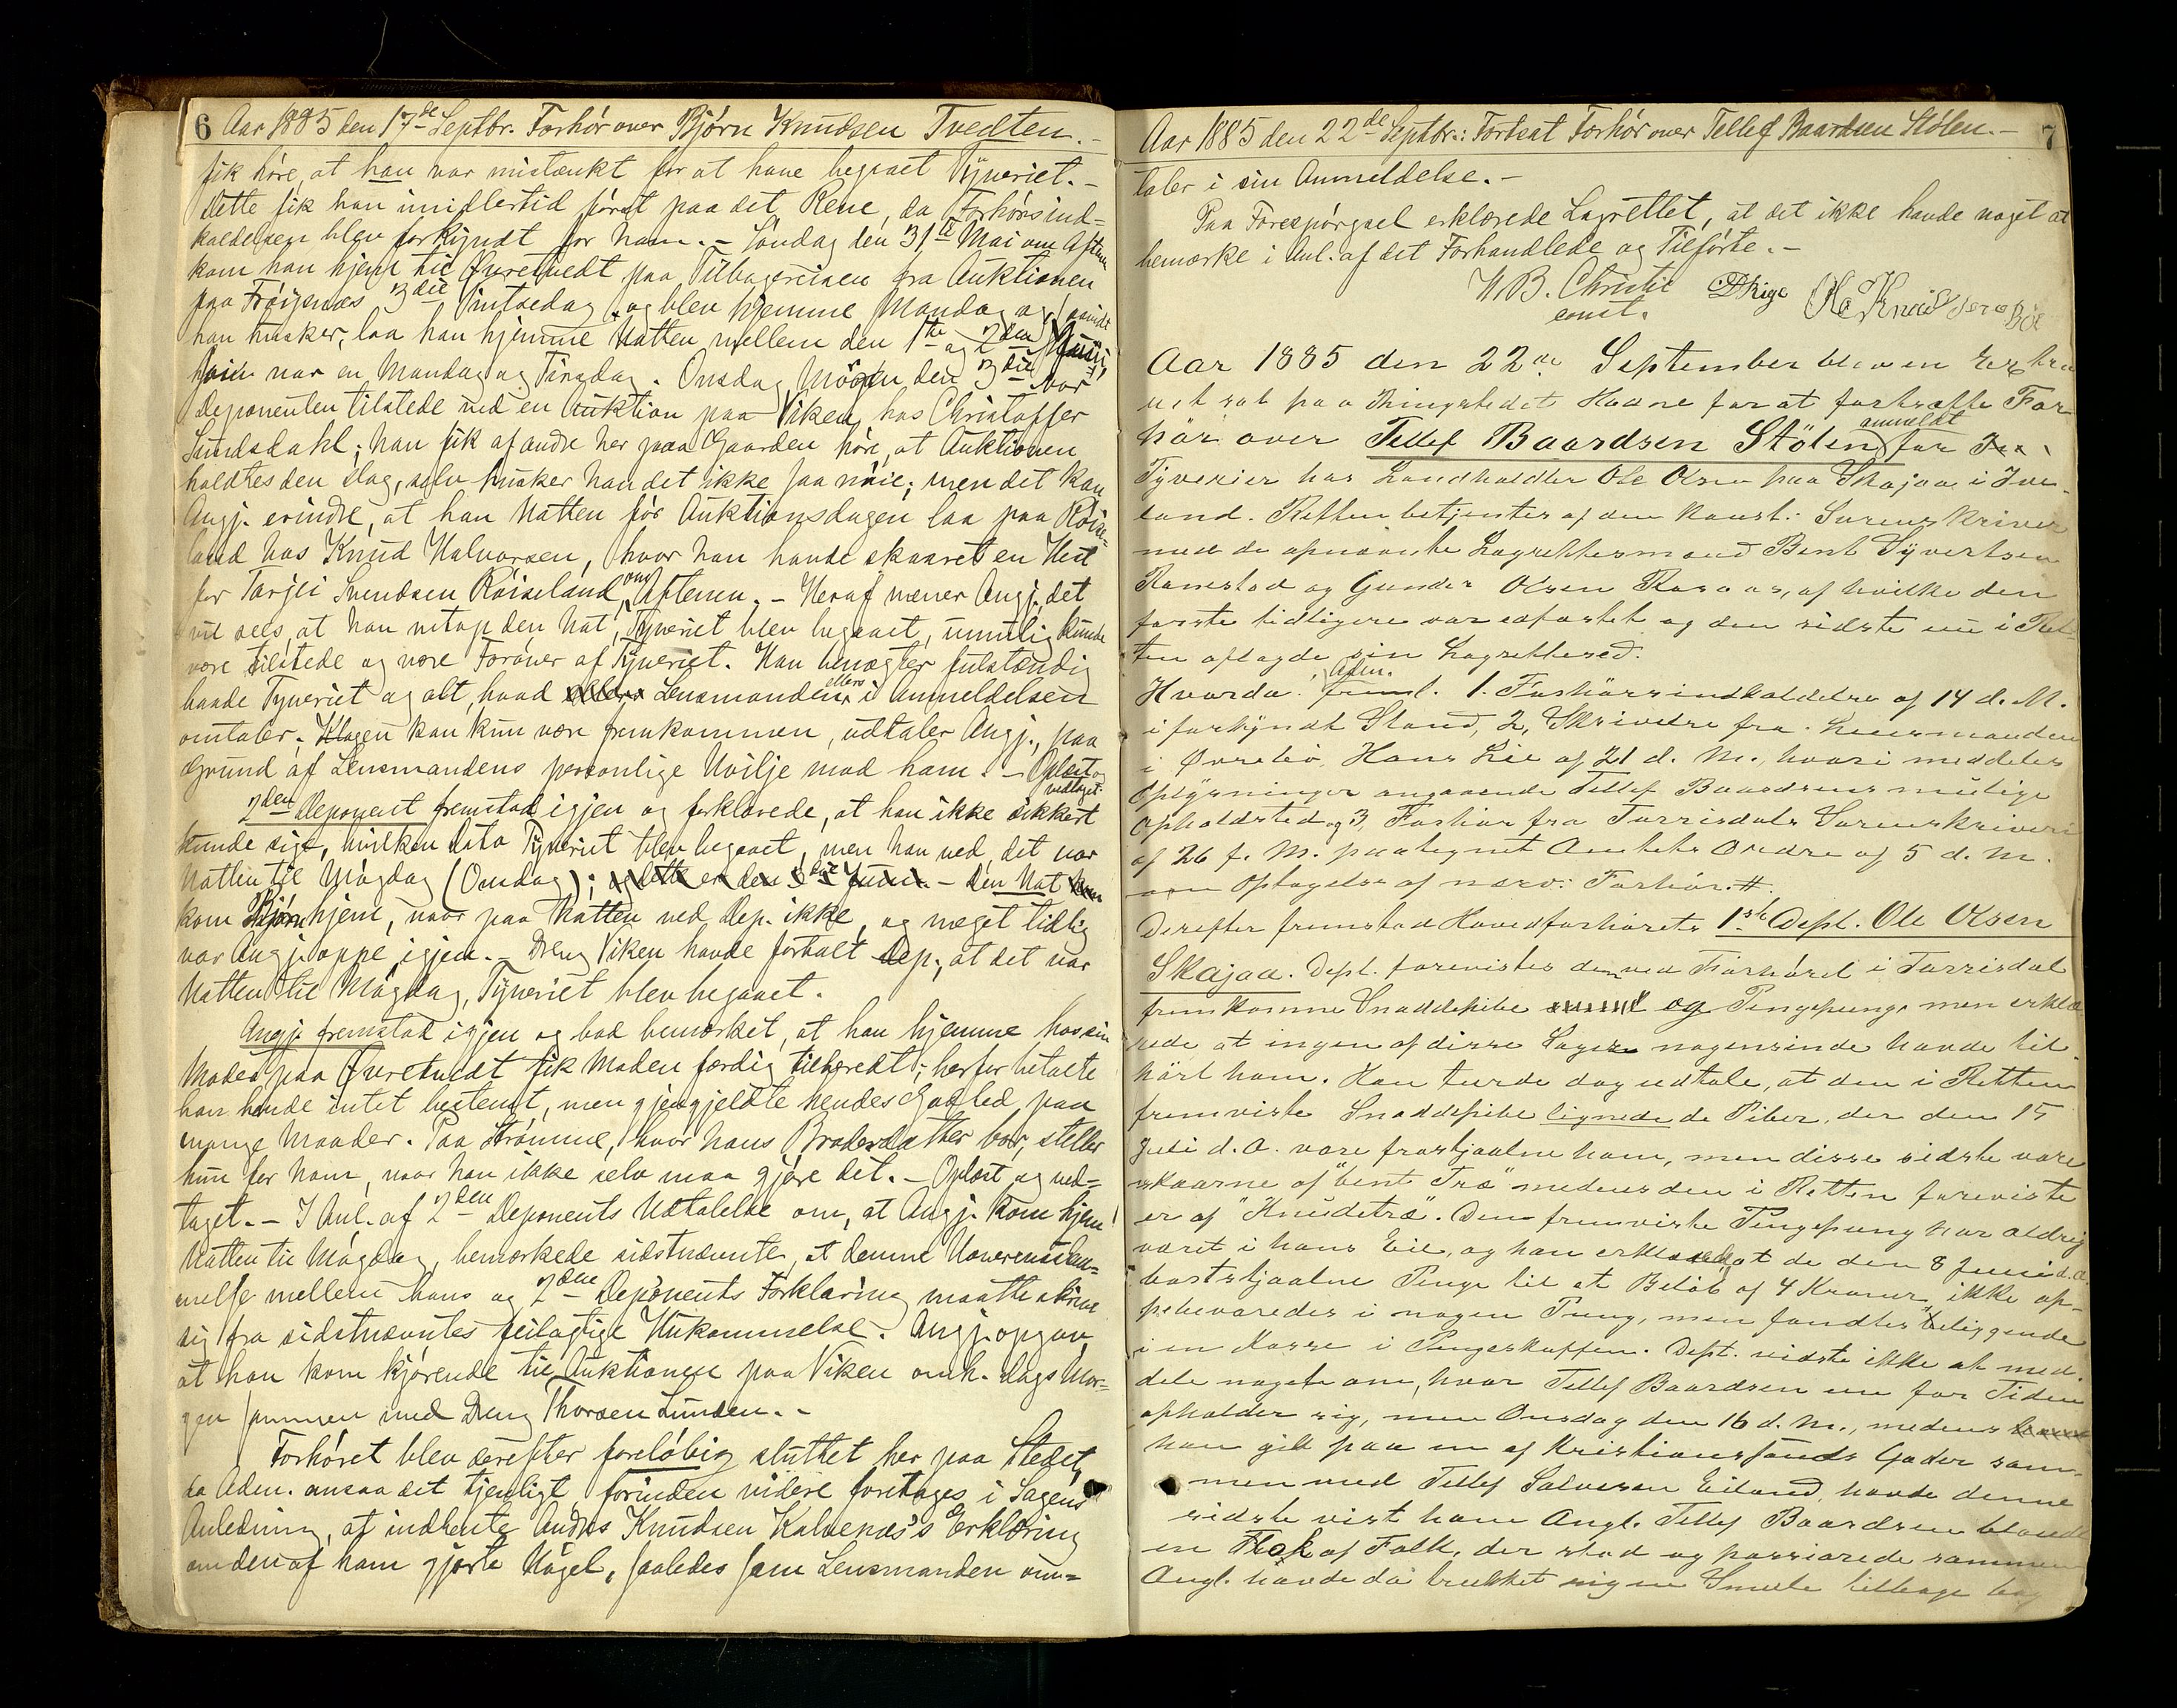 6 Aar 1885 den 17de Septbr. Forhör over Björn Knudsen Tvedten.-
fik höre, at han var mistænkt for at have begaaet Tyveriet.-
Dette fik han imidlertid först paa det Rene, da Forhörsind=
kaldelsen blev forkyndt for ham.- Söndag den 31te Mai om Aften
kom han hjem til Övretvedt paa Tilbagereisen fra Auktionen
paa Fröisnæs 3die Pintsedag og blev hjemme Mandag og, saavidt
han husker, laa han hjemme Natten mellem den 1te og 2den Juni,
hvilke var en Mandag og Tirsdag. Onsdag Mörgen den 3die var
Deponenten tilstede ved en Auktion paa Viken hos Christoffer
Sundsdahl; han fik af andre her paa Gaarden höre, at Auktionen
holdtes den Dag, selv husker han det ikke saa nöie; men det kan
Angj. erindre, at han Natten för Auktionsdagen laa paa Röise-
land hos Knud Halvorsen, hvor han havde skaaret en Hest
for Tarjei Svendsen Röiseland om Aftenen.- Heraf mener Angj. det
vil sees, at han netop den Nat, Tyveriet blev begaaet, umulig kunde
være tilstede og være Foröver af Tyveriet. Han benægter fulstændig
baade Tyveriet og alt, hvad Lensmanden ellers i Anmeldelsen
omtaler. Klagen kan kun være fremkommen, udtaler Angj., paa
Grund af Lensmandens personlige Uvilje mod ham.- Oplæst og
vedtaget.
2den Deponent fremstod igjen og forklarede, at han ikke sikkert
kunde sige, hvilken Dato Tyveriet blev begaaet, men han ved, det var
Natten til Mögdag (Onsdag); og dette er den 3die Juni.- Den Nat
kom Björn hjem, naar paa Natten ved Dep. ikke, og meget tidlig
var Angj. oppe igjen.- Dreng Viken havde fortalt Dep., at det var
Natten til Mögdag, Tyveriet blev begaaet.
Angj. fremstod igjen og bad bemærket, at han hjemme hos sin
Moder paa Övretvedt fik Maden færdig tilberedt; herfor betalte
han hende intet bestemt, men gjengjeldte hendes Godhed paa
mange Maader. Paa Strömme, hvor hans Brodersdatter bor, steller
hun for ham, naar han ikke selv maa gjöre det.- Oplæst og ved=
taget.- I Anl. af 2den Deponents Udtalelse om, at Angj. kom hjem
Natten til Mögdag, bemærkede sidstnævnte, at denne Uoverensstem=
melse mellem hans og 2den Deponents Forklaring maatte skrive
sig fra sidstnævntes feilagtige Hukommelse. Angj. opgav,
at han kom kjörende til Auktionen paa Viken omh. Dags Mor=
gen sammen med Dreng Thorsen Lunden.-
Forhöret blev derefter forelöbig sluttet her paa Stedet,
da Adm. ansaa det tjenligt, forinden videre foretages i Sagens
Anledning, at indhente Anders Knudsen Kalvenæs's Erklæring
om den af ham gjorte Nögel, saaledes som Lensmanden om=
Aar 1885 den 22de Septbr.: Fortsat Forhör over Tellef Baardsen Stölen.- 7
taler i sin Anmeldelse.-
Paa Forespörgsel erklærede Lagrettet, at det ikke havde noget at
bemærke i Anl. af det Forhandlede og Tilförte.-
W.B. Christie
const.
Aar 1885 den 22de September blev en Extra
ret sat paa Thingstedet Haane for at fortsætte For-
hör over Tellef Baardsen Stölen anmeldt for
Tyverier hos Landhandler Ole Olsen paa Skajaa i Ive-
land. Retten betjentes af den const: Sorenskriver
med de opnævnte Lagrettesmænd Bent Syvertsen
Ramstad og Gunder Olsen Rosaas, af hvilke den
förste tidligere var edfæstet og den sidste nu i Ret-
ten aflagde sin Lagretteed.
Hvorda Adm. freml. 1. Forhörsindkaldelse af 14 d. M.
i forkyndt Stand, 2, Skrivelse fra Lensmanden
i Övrebö Hans Lie af 21 d. M., hvori meddeles
Oplysninger angaaende Tellef Baardsens mulige
Opholdsted og 3, Forhör fra Torrisdals Sorenskriveri
af 26 f. M. paategnet Amtets Ordre af 5 d. M.
om Optagelse af nærv: Forhör. #.
Derefter fremstod Hovedforhörets 1ste Dept. Ole Olsen
Skajaa. Dept. forevistes den ved Forhöret i Torrisdal
fremkomne Snaddepibe og Pengepung, men erklæ
rede at ingen af disse Sager nogensinde havde til-
hört ham. Han turde dog udtale, at den i Retten
fremviste Snaddepibe lignede de Piber, der den 15
Juli d. A. vare frastjaalne ham, men disse sidste vare
skaarne af "bent Træ" medens den i Retten foreviste
er af "Knudetræ". Den fremviste Pengepung har aldrig
været i hans Eie, og han erklærede, at de den 8 Juni d. A.
bortstjaalne Penge til et Belöb af 4 Kroner ikke op-
bevaredes i nogen Pung, men fandtes beliggende
i en Kasse i Pengeskuffen. Dept. vidste ikke at med-
dele noget om, hvor Tellef Baardsen nu for Tiden
opholder sig, men Onsdag den 16 d. M., medens
han gik paa en af Kristiansands Gader sam-
men med Tellef Salvesen Eiland, havde denne
sidste vist ham Angl. Tellef Baardsen blandt
en Flok af Folk, der stod og passiarede sammen
Angl. havde da trukket sig en Smule tilbage bag